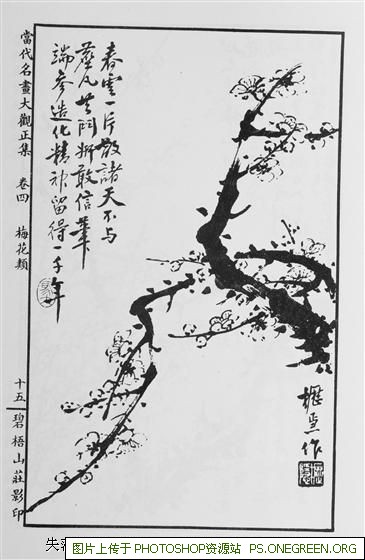 春雲一片散諸天不与
塵凡共鬥妍敢信筆
端參造化精神留得一千年
作
當代名畫大觀正集 卷四 梅花類
十五 碧梧山莊影印
图片上传于 PHOTOSHOP资源站 PS.ONEGREEN.ORG